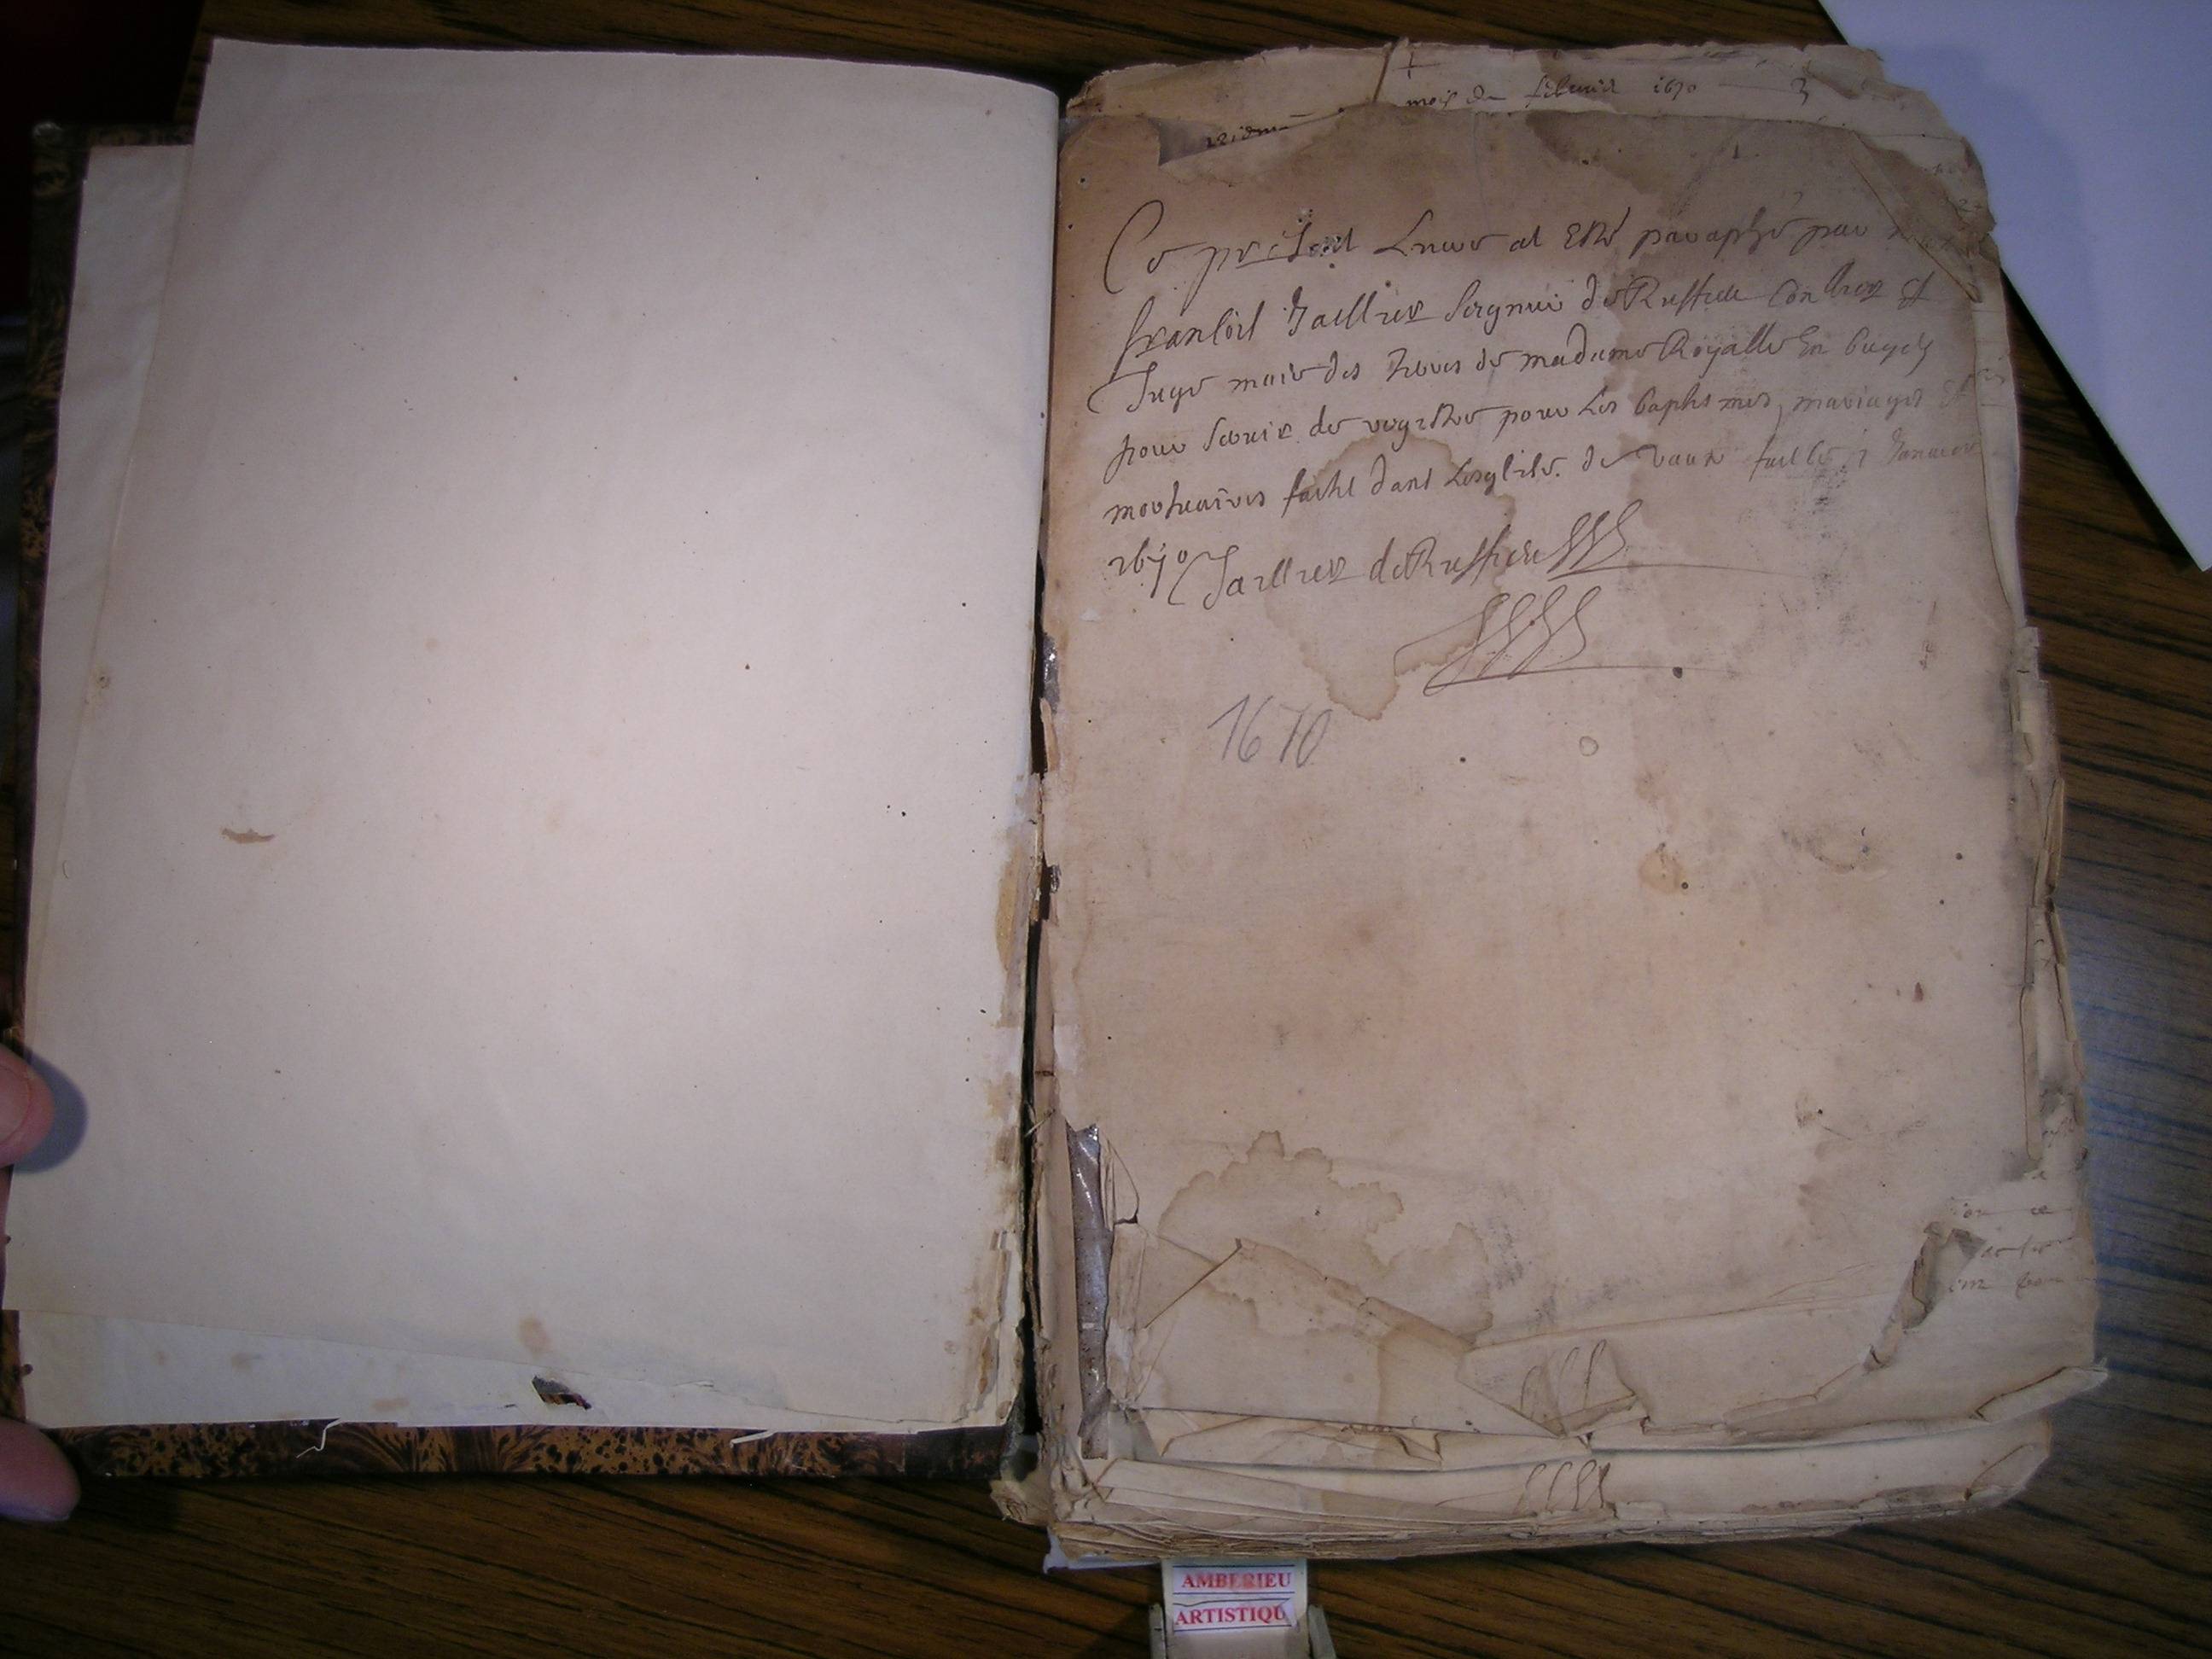 mois de febvrier 1670 3
Ce present Livre at Esté paraphé par
françois Taillier Seigneur de Ruffieu Con
Juge maie des Terres de madame Royalle En bugey
pour servir de registre pour Les baptesmes, mariages et
mortuaires faicts dans Lesglise de vaux faict le j Janvier
1670 Taillier de Ruffieu
1670
AMBERIEU
ARTISTIQU